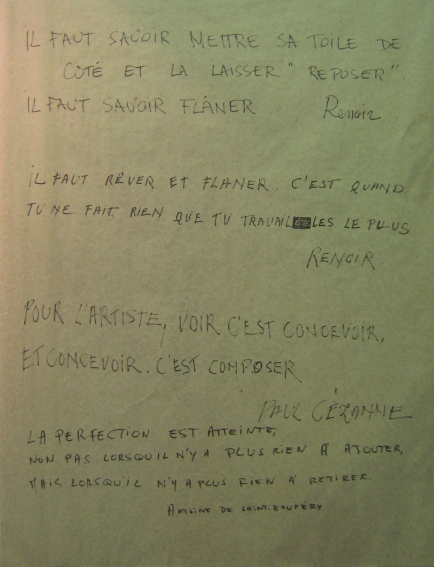 IL FAUT SAVOIR METTRE SA TOILE DE
COTÉ ET LA LAISSER "REPOSER".
IL FAUT SAVOIR FLÂNER Renoir
IL FAUT RÊVER ET FLANER. C'EST QUAND
TU NE FAIT RIEN QUE TU TRAVAILLES LE PLUS
RENOIR
POUR L'ARTISTE, VOIR C'EST CONCEVOIR,
ET CONCEVOIR. C'EST COMPOSER
PAUL CÉZANNE
LA PERFECTION EST ATTEINTE,
NON PAS LORSQU'IL N'Y A PLUS RIEN À AJOUTER,
MAIS LORSQU'IL N'Y A PLUS RIEN À RETIRER.
ANTOINE DE SAINT-EXUPÉRY